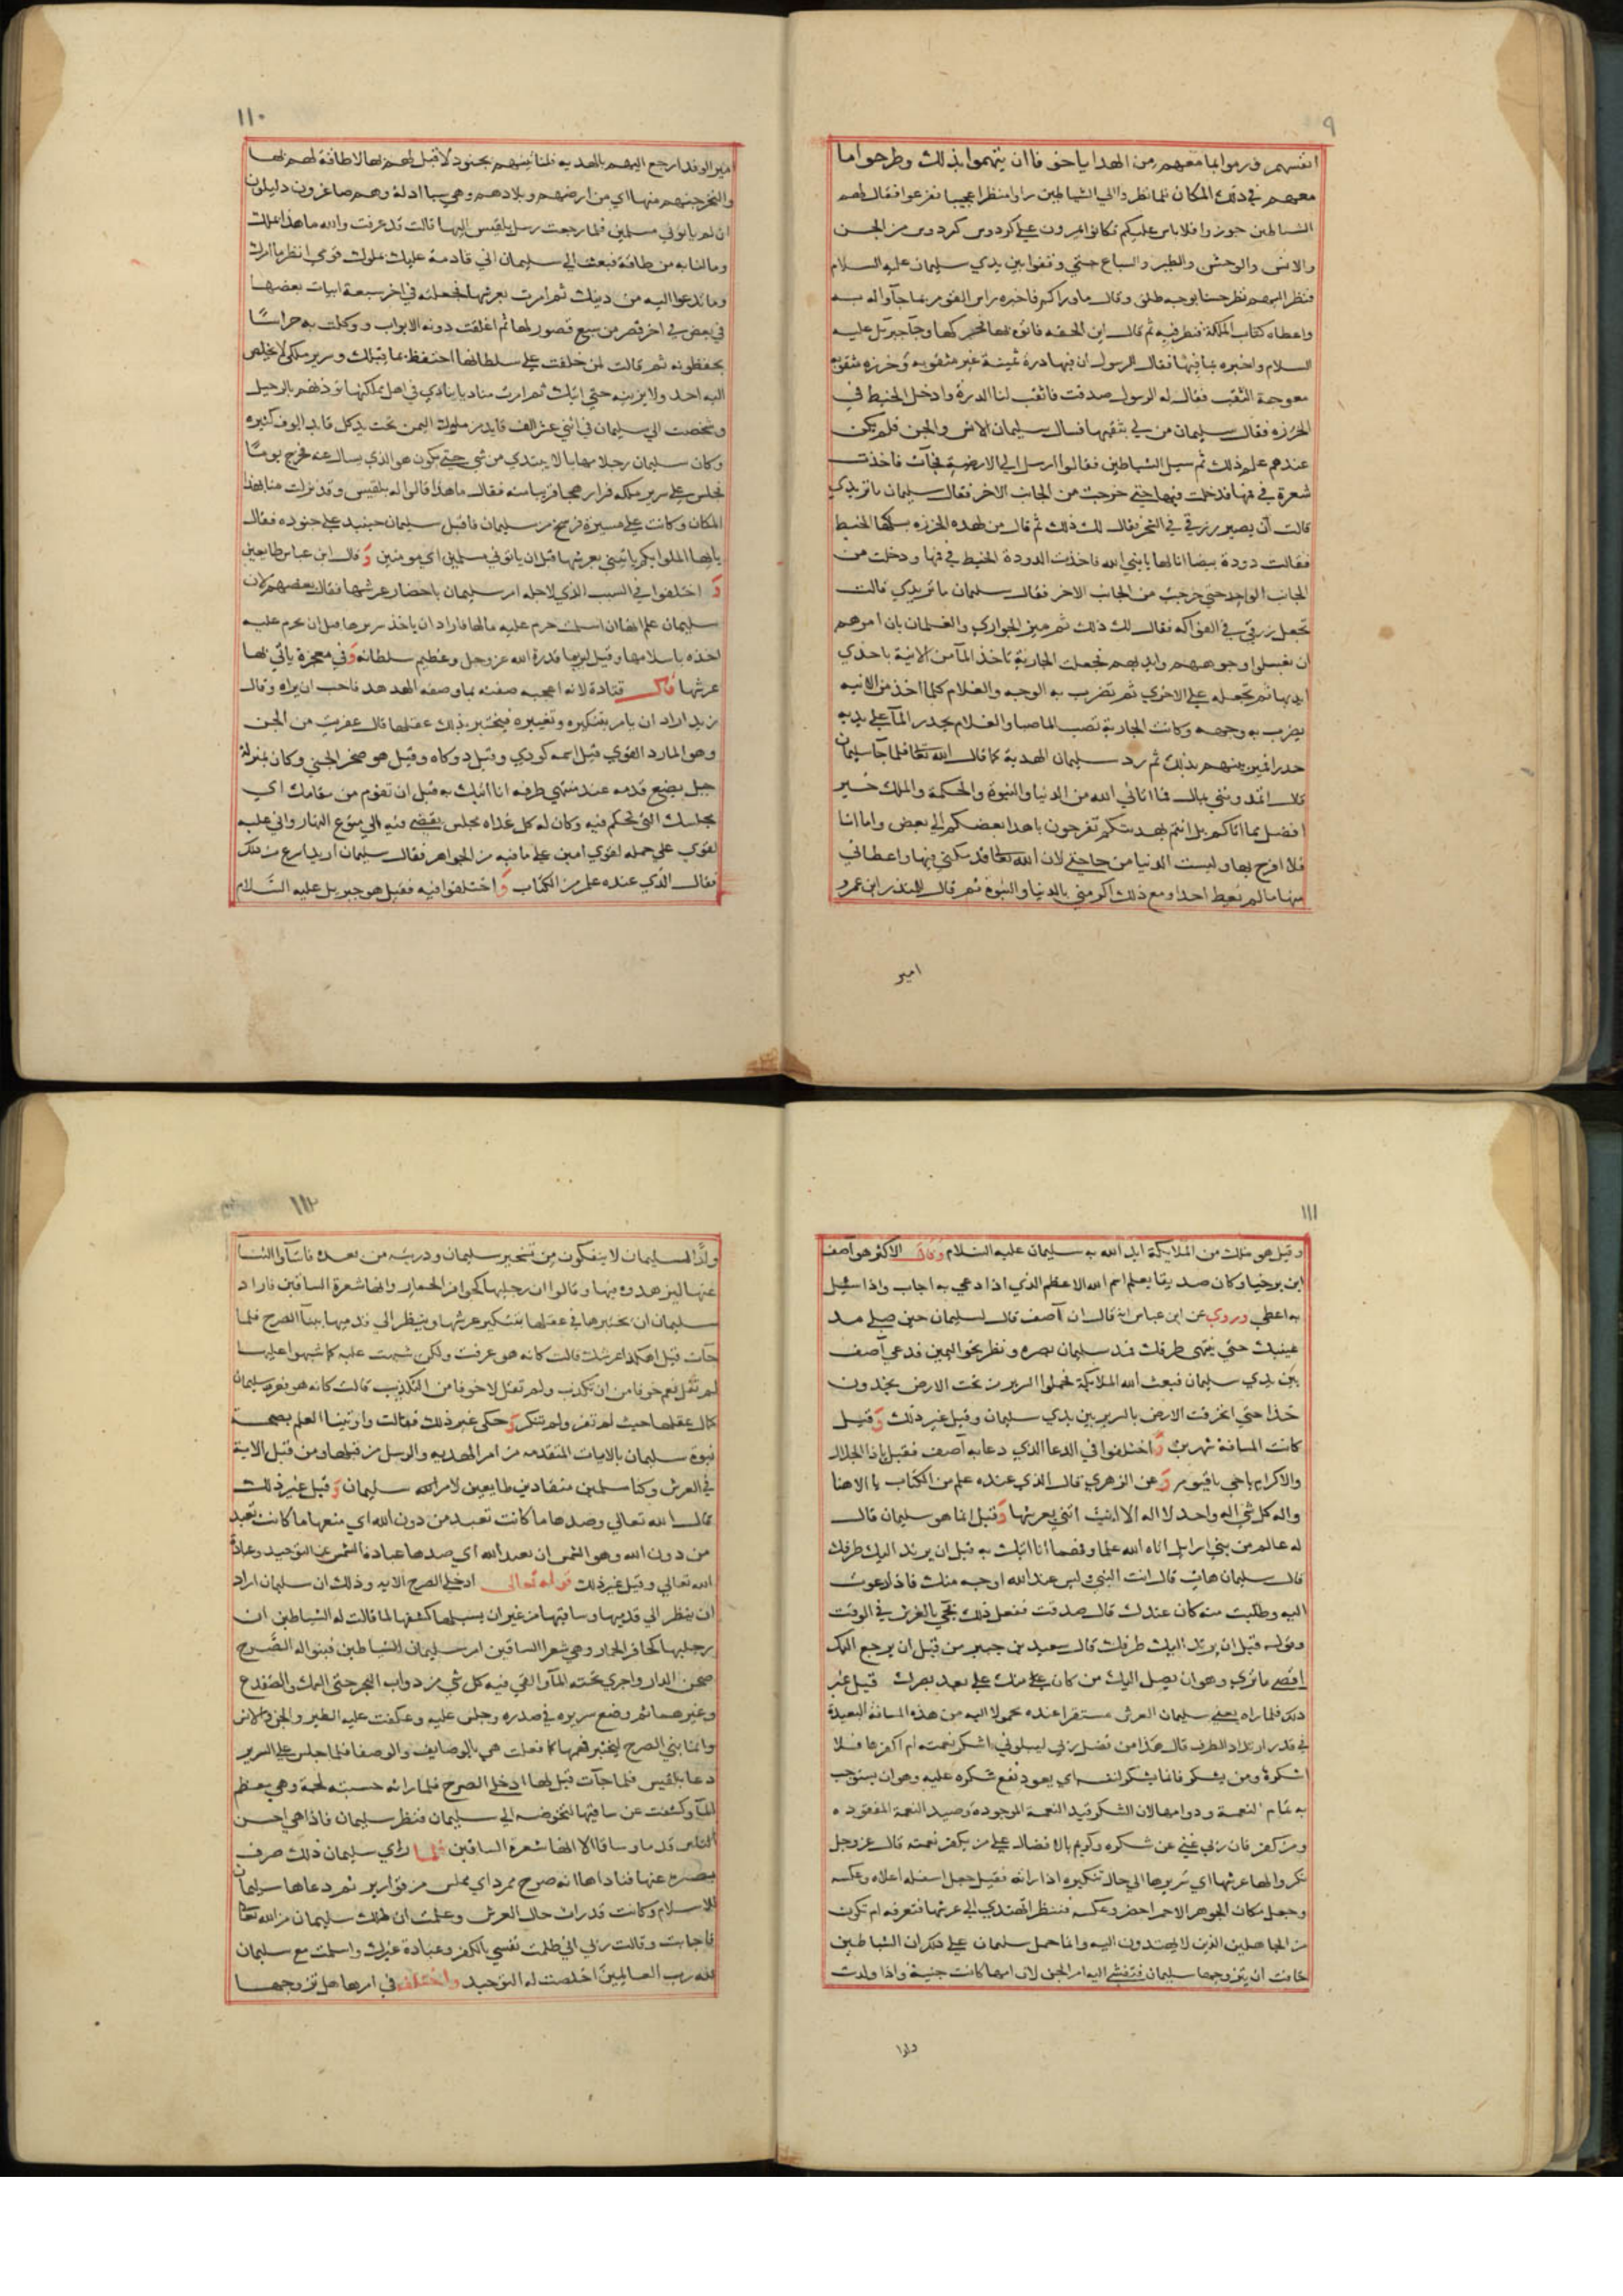 ٩
انفسهم ورموا بما معهم من الهدايا خوفا ان يتهموا بذلك وطرحوا ما
معهم في ذلك المكان فلما نظروا الي الشياطين راوا منظرا عجيبا ففزعوا فقال لهم
الشياطين جوزوا فلا باس عليكم فكانوا يمرون علي كردوس كردوس من الجن
والانس والوحش والطير والسباع حتي وقفوا بين يدي سليمان عليه السلام
فنظر اليهم نظر حسنا بوجه طلق وقال ما وراكم فاخبره راس القوم بما جآوا له به
واعطاه كتاب الملكة فنظر فيه ثم قال اين الحقه فاتوه بها فحركها وجآ جبريل عليه
السلام واخبره بما فيها فقال للرسول ان فيها درة ثمينة غير مثقوبه وخرزه مثقوبه
معوجة الثقب فقال له الرسول صدقت فاثقب لنا الدرة وادخل الخيط في
الخرزه فقال سليمان من لي بثقبها فسال سليمان الانس والجن فلم يكن
عندهم علم ذلك ثم سيل الشياطين فقالوا ارسل الي الارضة فجآت فاخذت
شعرة في فمها فدخلت فيها حتي خرجت من الجانب الاخر فقال سليمان ما تريدي
قالت ان يصير رزقي في الشجر فقال لك ذلك ثم قال من لهذه الخرزه يسلكها الخيط
فقالت دودة بيضا انا لها يا نبي الله فاخذت الدودة الخيط في فمها ودخلت من
الجانب الواحد حتي خرجت من الجانب الاخر فقال سليمان ما تريدي قالت
تجعل رزقي في الفواكه فقال لك ذلك ثم ميز الجواري والغلمان بان امرهم
ان يغسلوا وجوههم وايديهم فجعلت الجارية تاخذ المآ من الانية باحدي
يديها ثم تجعله علي الاخري ثم تضرب به الوجه والغلام كلما اخذ من الانيه
يضرب به وجهه وكانت الجارية تصب الما صبا والغلام يحدر المآ علي يديه
حدرا فميز بينهم بذلك ثم رد سليمان الهدية كما قال الله تعالى فلما جآ سليمان
قال اتمدونني بمال فما اتاني الله من الدنيا والنبوة والحكمة والملك خير
افضل مما اتاكم بل انتم بهديتكم تفرحون باهدا بعضكم الي بعض واما انا
فلا افرح بها وليست الدنيا من حاجتي لان الله تعالى قد مكنني فيها واعطاني
منها ما لم يعط احدا ومع ذلك اكرمني بالدنيا والنبوة ثم قال للمنذر ابن عمرو
امير
١١٠
امير الوفد ارجع اليهم بالهديه فلنا تينهم بجنود لا قبل لهم بها لا طاقة لهم بها
ولنخرجنهم منها اي من ارضهم وبلادهم وهي سبا اذلة وهم صاغرون ذليلون
ان لم ياتوني مسلمين فلما رجعت رسل بلقيس اليها قالت قد عرفت والله ما هذا بملك
وما لنا به من طاقة فبعثت الي سليمان اني قادمة عليك بملوك قومي انظر ما امرك
وما تدعوا اليه من دينك ثم امرت بعرشها فجعلته في اخر سبعة ابيات بعضها
في بعض في اخر قصر من سبع قصور لها ثم اغلقت دونه الابواب ووكلت به حراسًا
يحفظونه ثم قالت لمن خلفت علي سلطانها احتفظ بما قبلك وسرير ملكي لا يخلص
اليه احد ولا يرينه حتي اتيك ثم امرت مناديا ينادي في اهل مملكتها تؤذنهم بالرحيل
وشخصت الي سليمان في اثني عشر الف قايد من ملوك اليمن تحت يد كل قايد الوف كثيره
وكان سليمان رجلا مهابا لا يبتدي من شي حتي يكون هو الذي يسال عنه فخرج يومًا
فجلس علي سرير ملكه فراي رهجا قريبا منه فقال ما هذا قالوا له بلقيس وقد نزلت منا بهذا
المكان وكانت علي مسيرة فرسخ من سليمان فاقبل سليمان حينيذ علي جنوده فقال
يا ايها الملوا ايكم ياتيني بعرشها قبل ان ياتوني مسلمين اي مومنين وقال ابن عباس طايعين
واختلفوا في السبب الذي لاجله امر سليمان باحضار عرشها فقال بعضهم لان
سليمان علم انها ان اسلمت حرم عليه مالها فاراد ان ياخذ سريرها قبل ان يحرم عليه
اخذه باسلامها وقيل ليريها قدرة الله عز وجل وعظيم سلطانه وفي معجزة ياتي بها
عرشها قال قتادة لانه اعجبه صفته بما وصفه الهدهد فاحب ان يراه وقال
زيد اراد ان يامر بتنكيره وتغييره فيختبر بذلك عقلها قال عفريت من الجن
وهو المارد القوي قيل اسمه كودي وقيل دوكاه وقيل هو صخر الجني وكان بمنزلة
جبل يضع قدمه عند منتهي طرفه انا اتيك به قبل ان تقوم من مقامك اي
مجلسك التي تحكم فيه وكان له كل غداه مجلس يقضي فيه الي متوع النهار واني عليه
لقوي علي حمله لقوي امين علي ما فيه من الجواهر فقال سليمان اريد اسرع من ذلك
فقال الذي عنده علم من الكتاب واختلفوا فيه فقيل هو جبريل عليه السلام
١١١
وقيل هو ملك من الملايكة ايد الله به سليمان عليه السلام وقال الاكثر هو آصف
ابن برخيا وكان صديقا يعلم اسم الله الاعظم الذي اذا دعي به اجاب واذا سئيل
به اعطي وروي عن ابن عباس انه قال ان آصف قال لسليمان حين صلي مد
عينيك حتي ينتهي طرفك فمد سليمان بصره ونظر نحو اليمين فدعي آصف
بين يدي سليمان فبعث الله الملايكة فحملوا السرير من تحت الارض يخدون
خدا حتي انخرقت الارض بالسرير بين يدي سليمان وقيل غير ذلك وقيل
كانت المسافة شهرين واختلفوا في الدعا الذي دعا به آصف فقيل يا ذا الجلال
والاكرام يا حي يا قيوم وعن الزهري قال الذي عنده علم من الكتاب يا الاهنا
واله كل شي اله واحد لا اله الا انت ائتني بعرشها وقيل انما هو سليمان قال
له عالم من بني اسرايل اتاه الله علما وفهما انا اتيك به قبل ان يرتد اليك طرفك
قال سليمان هات قال انت النبي وليس عند الله اوجه منك فاذا دعوت
اليه وطلبت منه كان عندك قال صدقت ففعل ذلك فجي بالعرش في الوقت
وقوله قبل ان يرتد اليك طرفك قال سعيد بن جبير من قبل ان يرجع اليك
اقصي ما تري وهو ان يصل اليك من كان علي منك علي بعد بصرك قيل غير
ذلك فلما راه يعني سليمان العرش مستقرا عنده محمولا اليه من هذه المسافة البعيدة
في قدر ارتداد الطرف قال هذا من فضل ربي ليبلوني اشكر نعمته ام اكفرها فلا
اشكره ومن يشكر فانما يشكر لنفسه اي يعود نفع شكره عليه وهو ان يستوجب
به تمام النعمة ودوامها لان الشكر قيد النعمة الموجودة وصيد النعمة المفقوده
ومن كفر فان ربي غني عن شكره وكريم بالافضال علي من يكفر نعمته قال عز وجل
نكروا لها عرشها اي سريرها الي حال تنكيره اذا راته فقيل جعل اسفله اعلاه وعكسه
وجعل مكان الجوهر الاحمر اخضر وعكسه فننظر اتهتدي الي عرشها فتعرفه ام تكون
من الجاهلين الذين لا يهتدون اليه وانما حمل سليمان علي ذلك ان الشياطين
خافت ان يتزوجها سليمان فتفشي اليه امر الجن لان امها كانت جنية واذا ولدت
ولدا
١١٢
ولدًا لسليمان لا ينفكون من تسخير سليمان وذريته من بعده فاسآوا الثنآ
عنها ليزهدوه فيها وقالوا ان رجليها كحوافر الحمار وانها شعرة الساقين فاراد
سليمان ان يختبرها في عقلها بتنكير عرشها وينظر الي قدميها ببنآ الصرح فلما
جآت قيل اهكذا عرشك قالت كانه هو عرفت ولكن شبهت عليه كما شبهوا عليها
لم تقل نعم خوفا من ان تكذب ولم تقل لا خوفا من التكذيب قالت كانه هو فعرف سليمان
كمال عقلها حيث لم تقر ولم تنكر وحكي غير ذلك فقالت واوتينا العلم بصحة
نبوة سليمان بالايات المتقدمه من امر الهديه والرسل من قبلها ومن قبل الاية
في العرش وكنا مسلمين منقادين طايعين لامر الله سليمان وقيل غير ذلك
قال الله تعالي وصدها ما كانت تعبد من دون الله اي منعها ما كانت تعبد
من دون الله وهو الشمس ان تعبد الله اي صدها عبادة الشمس عن التوحيد وعبادة
الله تعالي وقيل غير ذلك قوله تعالى ادخلي الصرح الايه وذلك ان سليمان اراد
ان ينظر الي قدميها وساقيها من غير ان يسيلها كشفها لما قالت له الشياطين ان
رجليها كحافر الحمار وهي شعرا الساقين امر سليمان الشياطين فبنوا له الصرح
صحن الدار واجري تحته المآ والقي فيه كل شي من دواب البحر حتي السمك والضفدع
وغيرهما ثم وضع سريره في صدره وجلس عليه وعكفت عليه الطير والجن والانس
وانما بني الصرح ليختبر فهمها كما فعلت هي بالوصايف والوصفا فلما جلس علي السرير
دعا بلقيس فلما جآت قيل لها ادخلي الصرح فلما راته حسبته لجة وهي معظم
المآ وكشفت عن ساقيها لتخوضه الي سليمان فنظر سليمان فاذا هي احسن
الناس قدما وساقا الا انها شعرة الساقين فلما راي سليمان ذلك صرف
بصره عنها فناداها انه صرح ممرد اي مملس من قوارير ثم دعاها سليمان
للاسلام وكانت قد رات حال العرش وعلمت ان ملك سليمان من الله تعالى
فاجابت وقالت ربي اني ظلمت نفسي بالكفر وعبادة غيرك واسلمت مع سليمان
لله رب العالمين اخلصت له التوحيد واختلف في امرها هل تزوجها